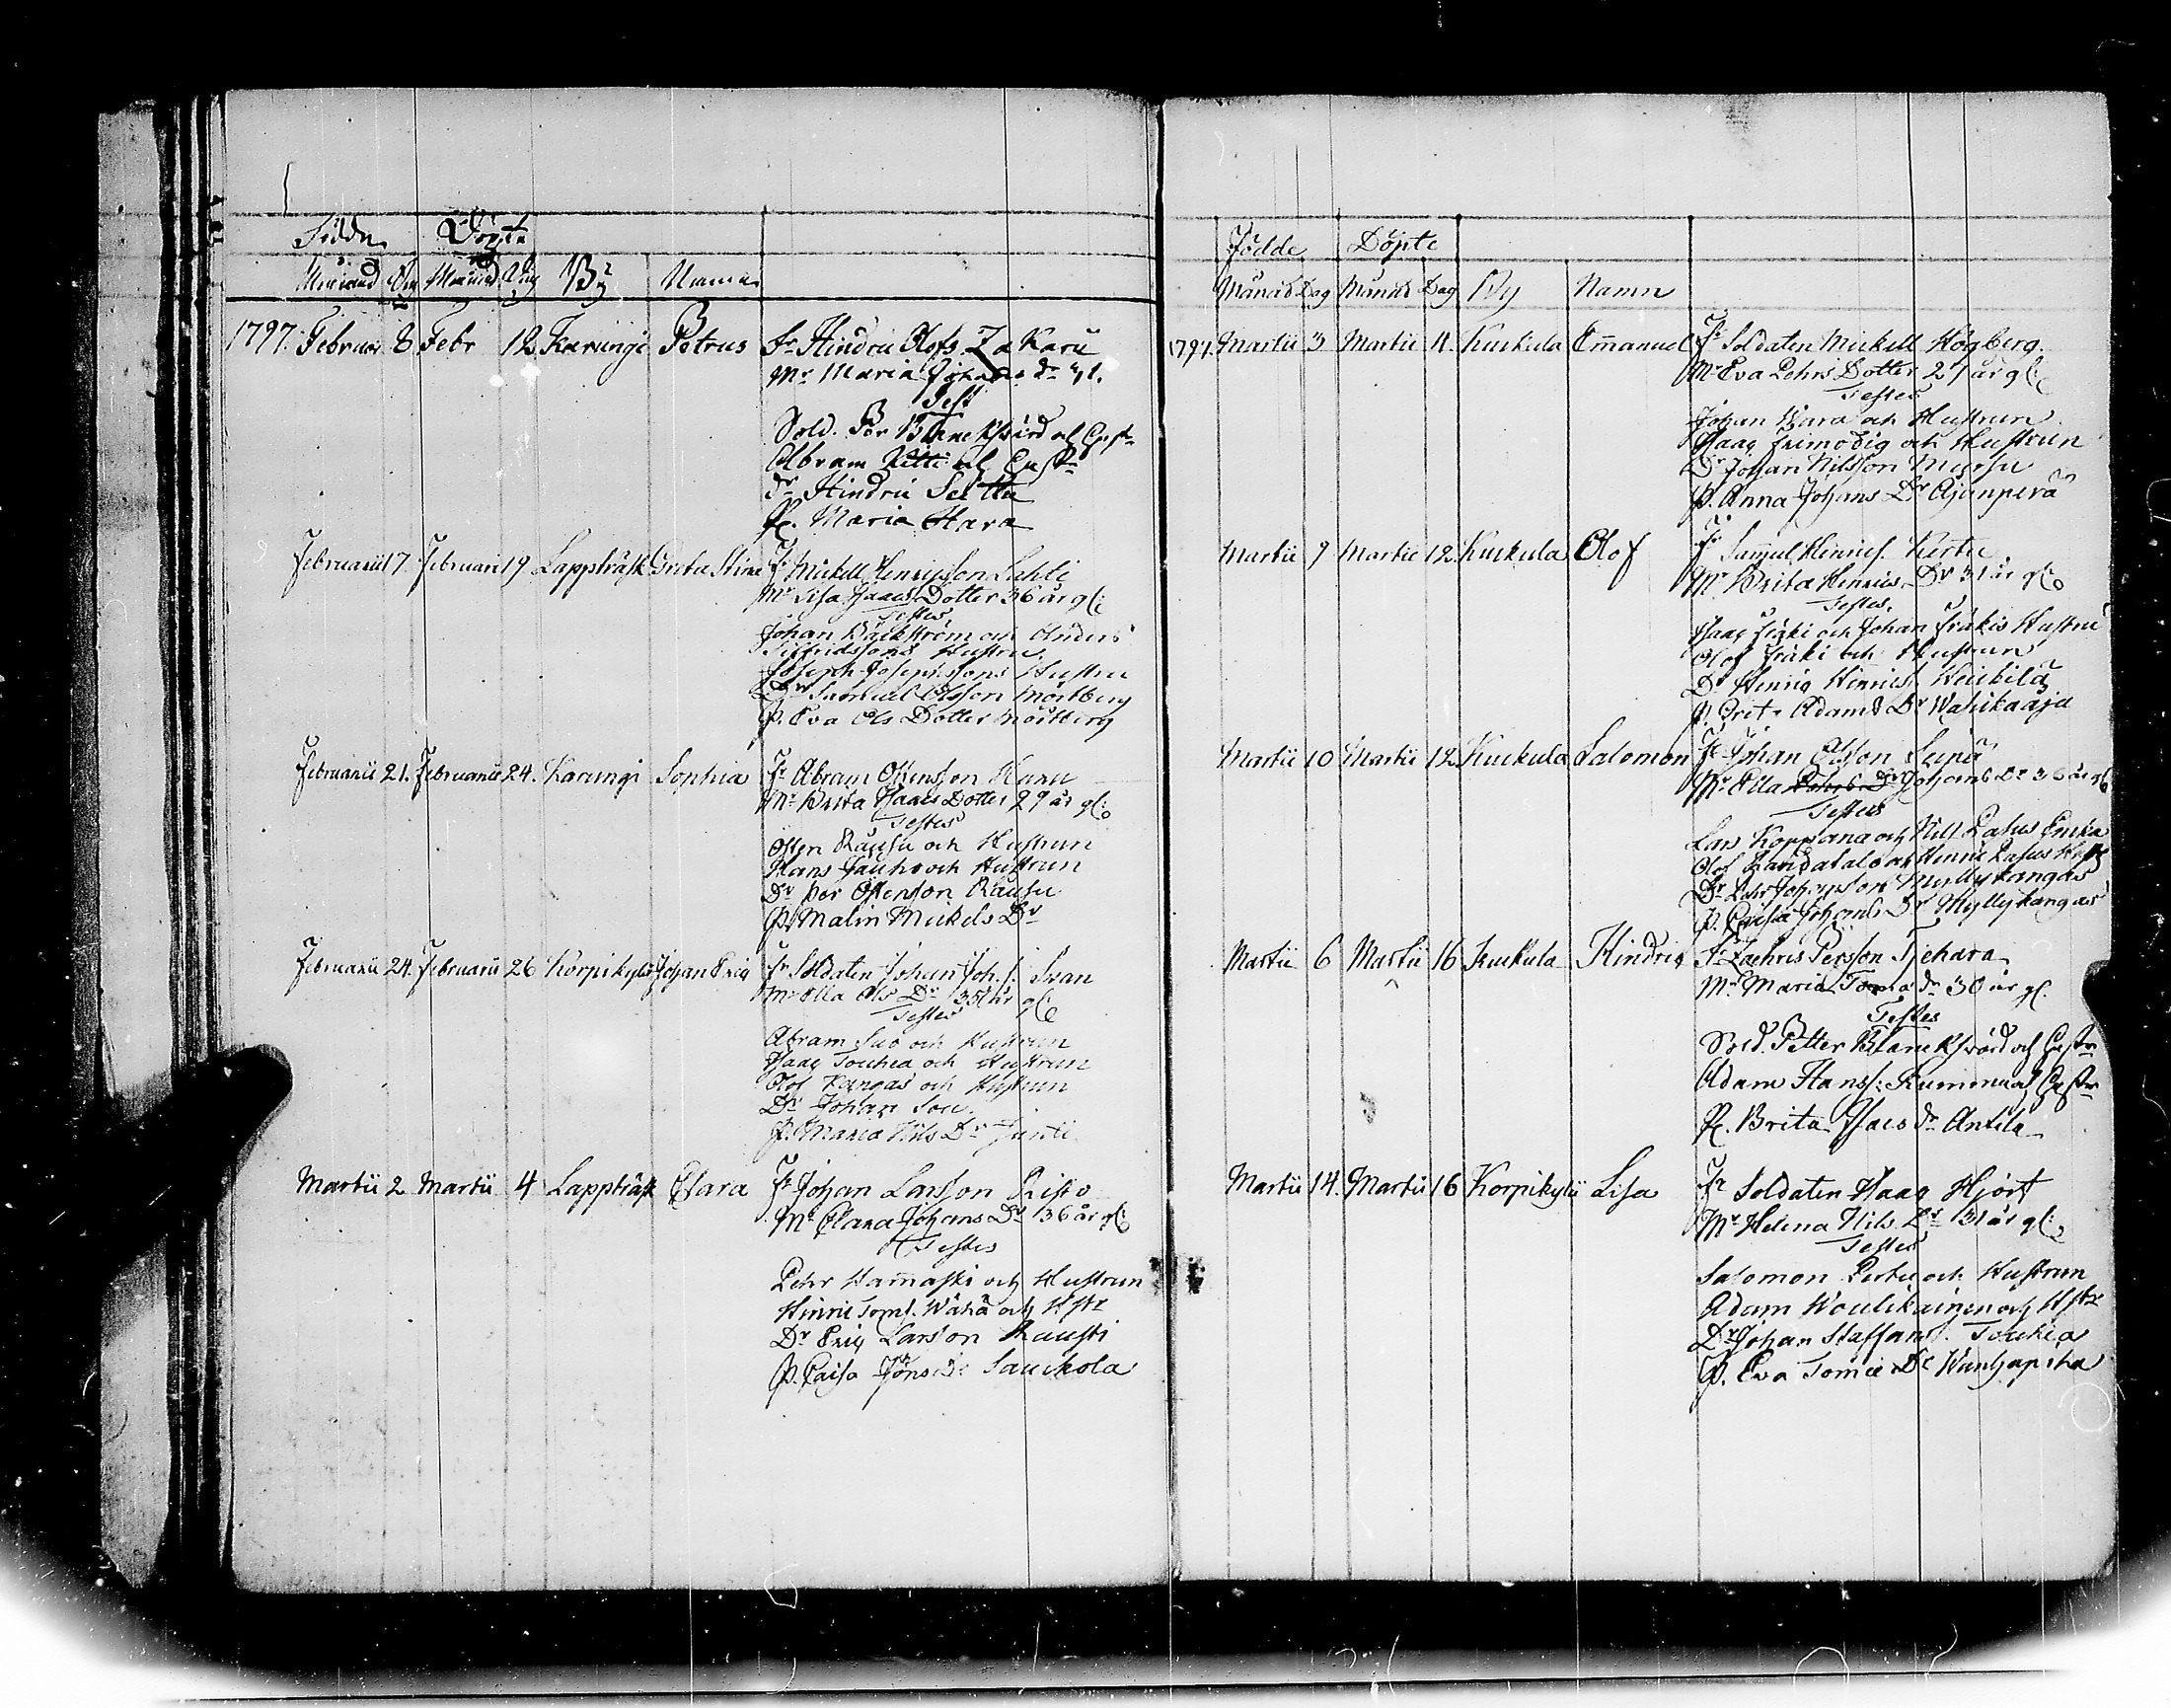 Födde Döpte
Månad Dag Månad Dag By Namn
1797. Februar 8 Febr 12 Karungi Petrus Fr Hindric Olofs Zakari
Mr Maria Johans dr 31.
Test
Sold. Per Blanksvärd och
Abram Kitti och
dr Hindric
P. Maria Hara
Februarii 17. Februari 19 Lappträsk Greta Stina Fr Mickell Henricsson Lahti
Mr Lisa Isaacs Dotter 36 år gl:
Testes,
Johan Bäckström och Anders
Sigfridssons Hustru.
Joseph Josephssons Hustru
Dr Samuel Olsson Mörtberg
P. Eva Ols Dotter Mörtberg
Februarii 21. Februarii 24. Karungi Sophia Fr Abram Ostensson Hara
Mr Brita Isaacs Dotter 29 år gl:
Testes
Osten Rausu och Hustrun
Hans Jauho och Hustrun
Dr Per Ostenson Rausu
P. Malin Mickels Dr
Februarii 24. Februarii 26 Korpikylä Johan Eriq Fr Soldaten Johan Joh. s: Svan
Mr Ella Ols Dr 35 år gl:
Testes
Abram Suo och Hustrun
Isaaq Touhea och Hustrun
Olof Kangas och Hustrun
Dr Johan Sou.
P. Maria Nils Dr Junti
Martii 2 Martii 4 Lappträsk Clara Fr Johan Larsson Risto
Mr Clara Johans Dr 36 år gl:
Testes
Pehr Hannaski och Hustrun
Hinric Toms. Wähä och Hstr
Dr Eriq Larsson Rausti
P. Caisa Jöns Dr Sauckola
Födde Döpte
Månad Dag Månad Dag By Namn
1797. Martii 3 Martii 11. Kuckula Emanuel Fr Soldaten Mickell Högberg.
Mr Eva Pehrs Dotter 27 år gl:
Testes
Johan och Hustrun
Isaaq Frimodig och Hustrun
Dr Johan Nilsson
P. Anna Johans Dr Ajanperä
Martii 9 Martii 12. Kuckula Olof Fr Samuel Hinrics. Kertu
Mr Brita Henrics Dr 31 år gl:
Testes.
Isaaq Fräki och Johan Fräkis Hustru
Olof Fräki och Hustrun
Dr Henriq Hinrics. Heickilä
P. Grita Adams Dr Wahikaaja
Martii 10 Martii 12. Kuckula Salomon Fr Johan Olsson Seinä
Mr Ella Johans Dr 36 år gl
Testes
Lars Koppana och Nills Lasus Enka
Olof och Henric Lasus
Dr Pehr Johansson Myllykangas
P. Caisa Johans Dr Myllykangas
Martii 6 Martii 16 Kuckula Hindriq Fr Zachris Persson Tjehara
Mr Maria Toma dr 30 år gl.
Testes
Sold. Petter Blanksvärd och
Adam Hanss: Kummu och
P. Brita Isacs dr Antila
Martii 14. Martii 16 Korpikylä Lisa Fr Soldaten Isaaq Hjort
Mr Helena Nils Dr 31 år gl:
Testes
Salomon Pertu och Hustrun
Adam Woulikainen och Hstr
Dr Johan Staffans. Touhea
P. Eva Tomæ Dr